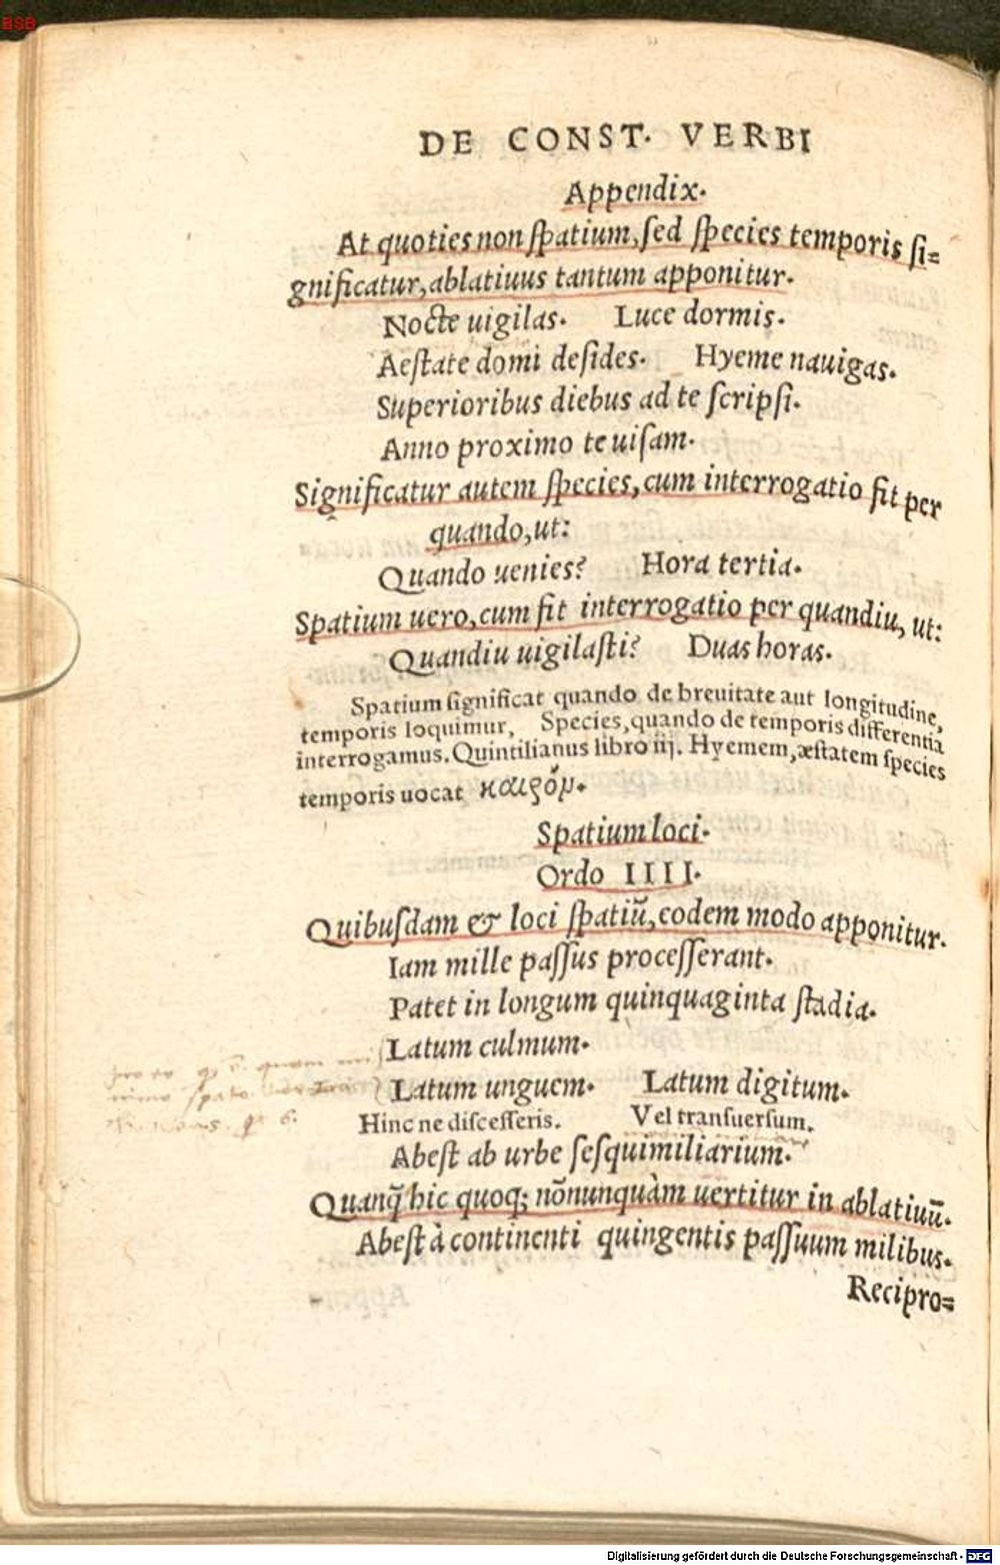 BSB
DE CONST. VERBI
Appendix.
At quoties non ſpatium, ſed ſpecies temporis ſi=
gnificatur, ablatiuus tantum apponitur.
Nocte uigilas. Luce dormis.
Aeſtate domi deſides. Hyeme nauigas.
Superioribus diebus ad te ſcripſi.
Anno proximo te uiſam.
Significatur autem ſpecies, cum interrogatio fit per
quando, ut:
Quando uenies? Hora tertia.
Spatium uero, cum fit interrogatio per quandiu, ut:
Quandiu uigilaſti? Duas horas.
Spatium ſignificat quando de breuitate aut longitudine,
temporis loquimur, Species, quando de temporis differentia
interrogamus. Quintilianus libro iij. Hyemem, æſtatem ſpecies
temporis uocat καιρόμ.
Spatium loci.
Ordo IIII.
Quibuſdam & loci ſpatiū, eodem modo apponitur.
Iam mille paſſus proceſſerant.
Patet in longum quinquaginta ſtadia.
Latum culmum.
Latum unguem. Latum digitum.
Hinc ne diſceſſeris. Vel tranſuerſum.
Abeſt ab urbe ſeſquimiliarium.
Quanq̃ hic quoq; nōnunquàm uertitur in ablatiuū.
Abeſt à continenti quingentis paſſuum milibus.
Recipro=
Digitalisierung gefördert durch die Deutsche Forschungsgemeinschaft - DFG